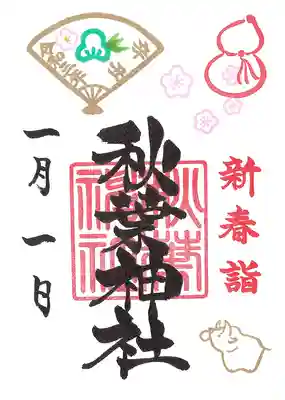 新春詣
秋葉神社
一月一日